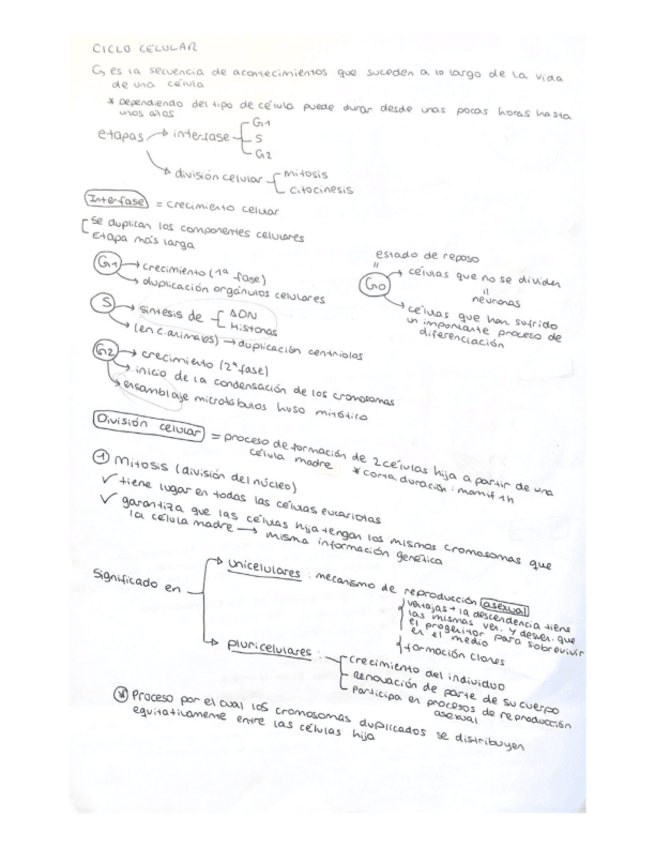 CICLO CELULAR
↳ es la secuencia de acontecimientos que suceden a lo largo de la vida
de una célula
* Dependiendo del tipo de célula puede durar desde unas pocas horas hasta
unos años
etapas → interfase { G1
S
G2
→ división celular { mitosis
citocinesis
Interfase = crecimiento celular
[ se duplican los componentes celulares
etapa más larga
G1 → crecimiento (1ª fase)
→ duplicación orgánulos celulares
S → síntesis de { ADN
Histonas
→ (en c. animales) → duplicación centriolos
G2 → crecimiento (2ª fase)
→ inicio de la condensación de los cromosomas
→ ensamblaje microtúbulos huso mitótico
estado de reposo
=
G0 → células que no se dividen
=
neuronas
→ células que han sufrido
un importante proceso de
diferenciación
División celular = proceso de formación de 2 células hija a partir de una
célula madre * corta duración: 1h
① Mitosis (división del núcleo)
✓ tiene lugar en todas las células eucariotas
✓ garantiza que las células hija tengan los mismos cromosomas que
la célula madre → misma información genética
Significado en
→ unicelulares : mecanismo de reproducción asexual
ventajas → la descendencia tiene
las mismas ven. y desven. que
el progenitor para sobrevivir
en el medio
formación clones
→ pluricelulares : crecimiento del individuo
renovación de parte de su cuerpo
participa en procesos de reproducción
asexual
* Proceso por el cual los cromosomas duplicados se distribuyen
equitativamente entre las células hija